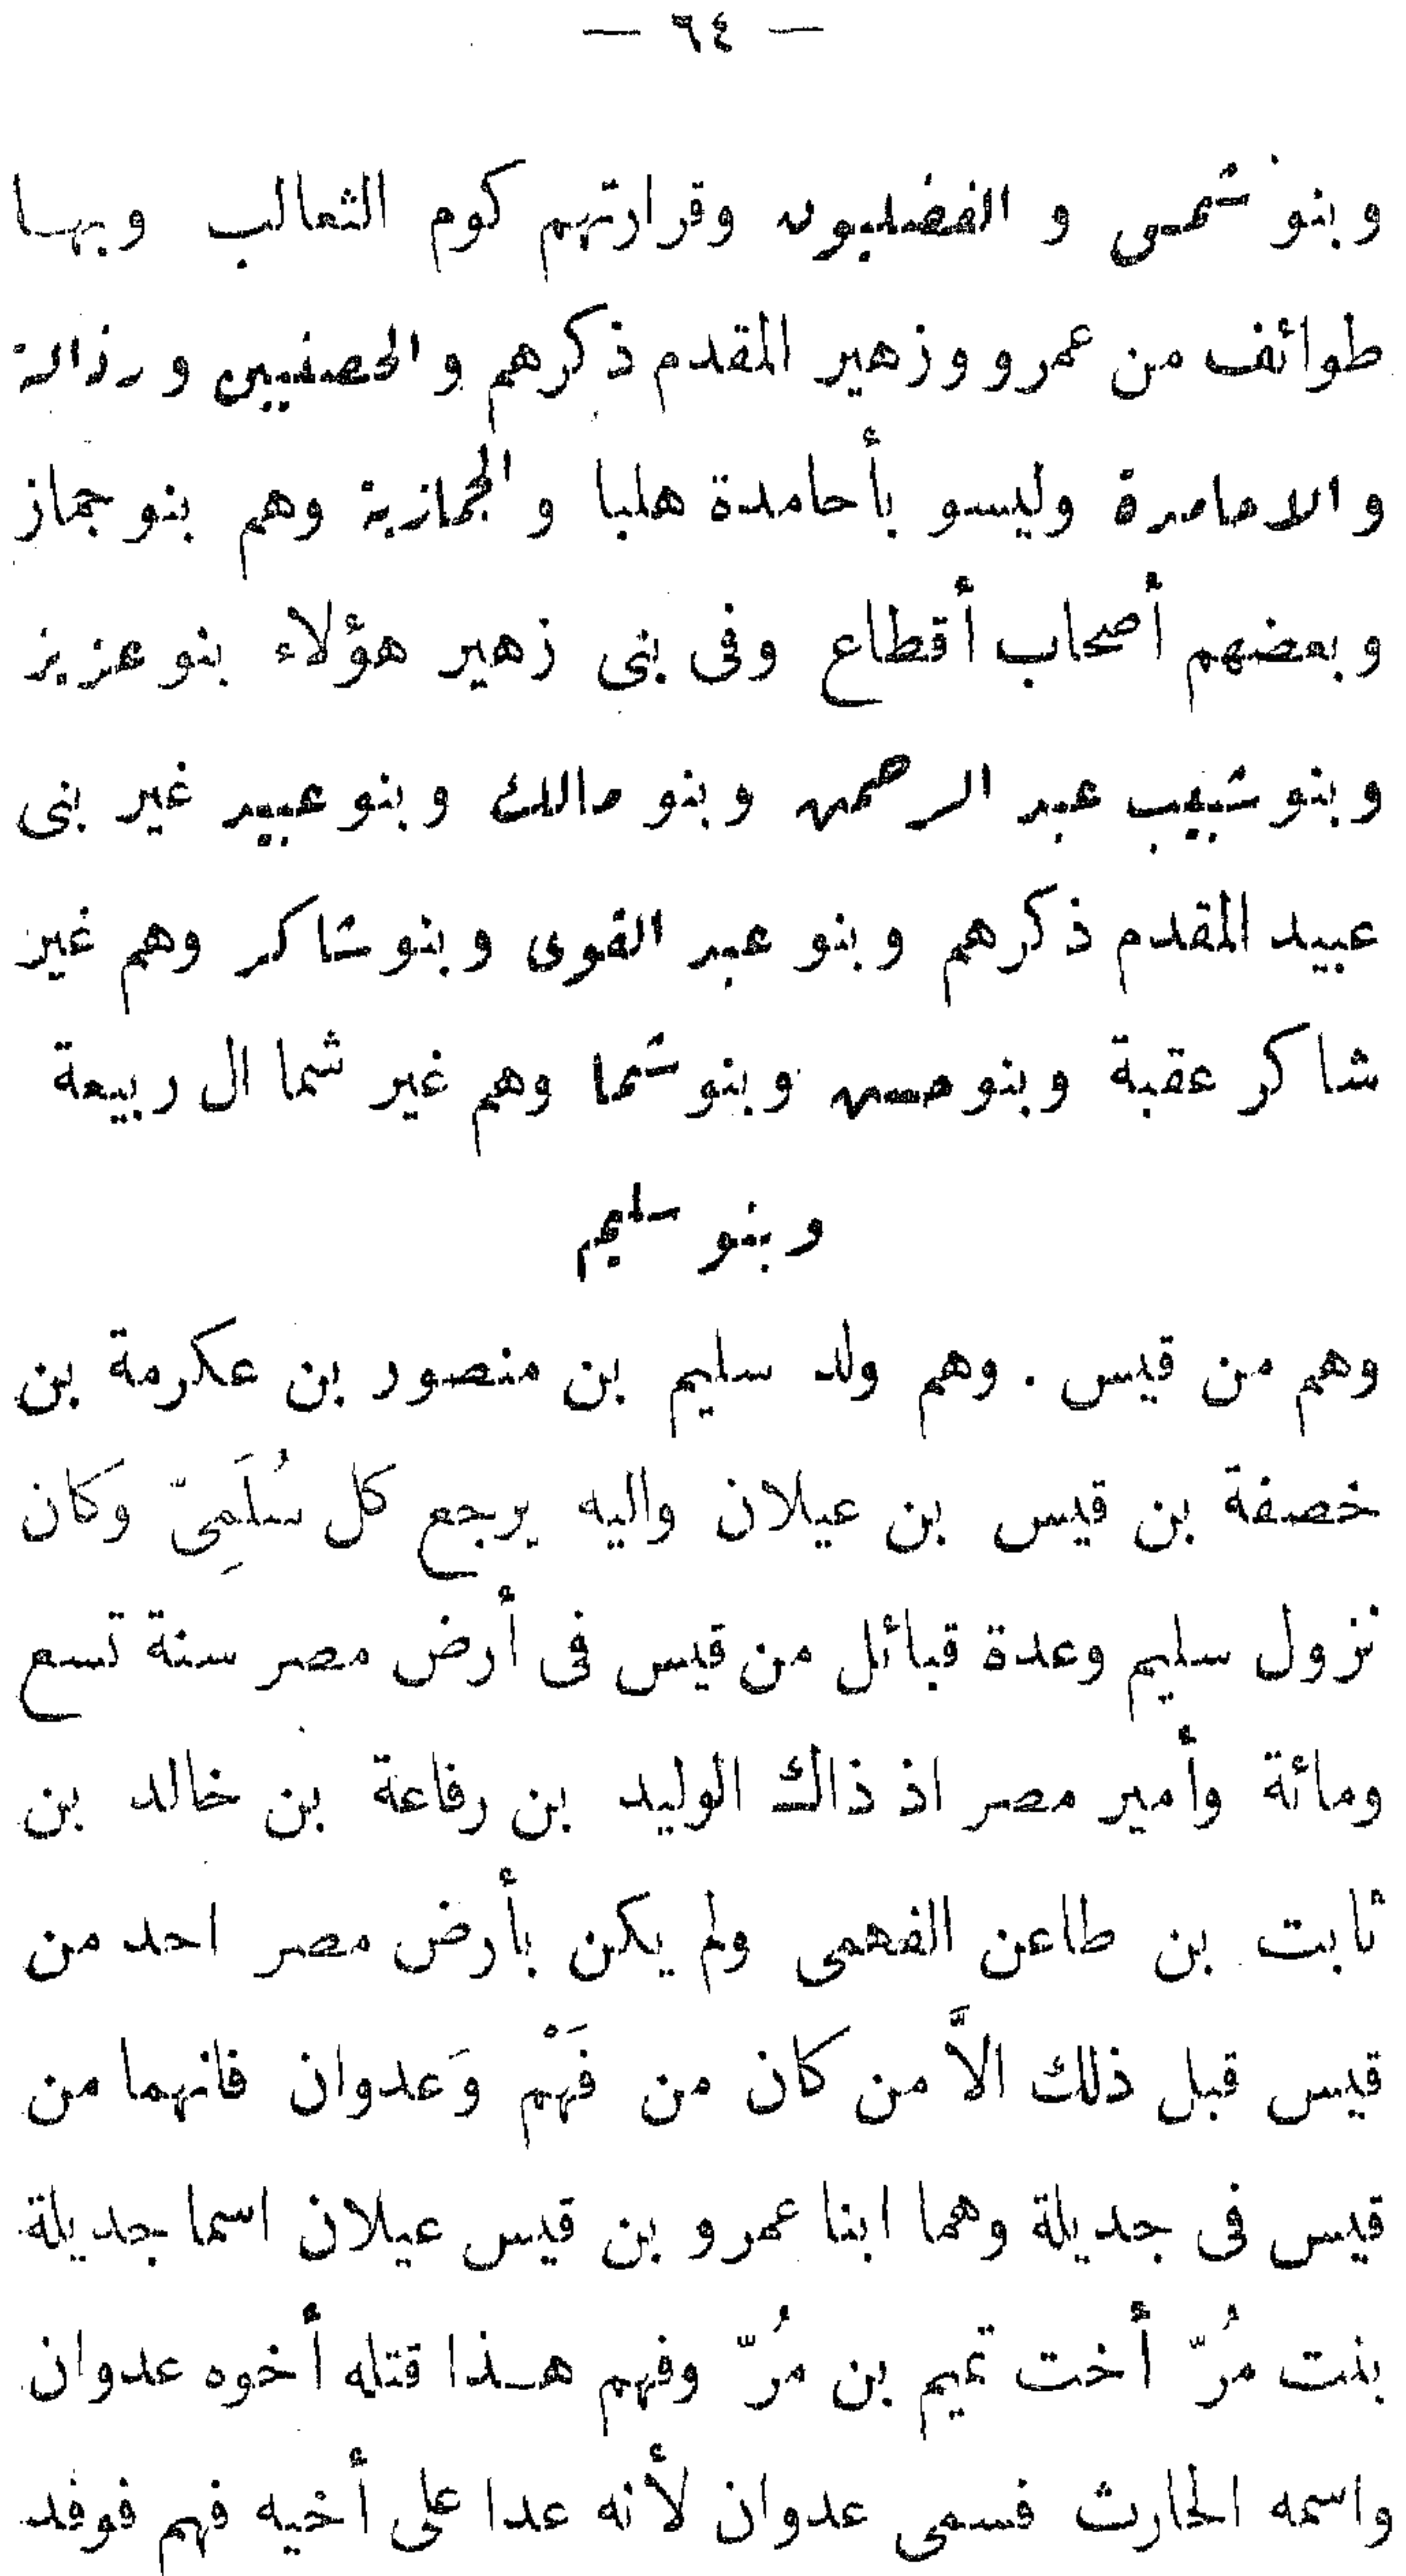 — ٦٤ —
وبنو شمس و الفضليون وقرارتهم كوم الثعالب وبهـا
طوائف من عمرو وزهير المقدم ذكرهم و الحصنيين و رذالة
و الاحامدة وليسو بأحامدة هلبا و الجمازية وهم بنو جماز
وبعضهم أصحاب أقطاع وفى بنى زهير هؤلاء بنو عزيز
وبنو شبيب عبد الرحمن وبنو مالك وبنو عبيد غير بنى
عبيد المقدم ذكرهم وبنو عبد القوى وبنو شاكر وهم غير
شاكر عقبة وبنو حسن وبنو شما وهم غير شما ال ربيعة
وبنو سليم
وهم من قيس . وهم ولد سليم بن منصور بن عكرمة بن
خصفة بن قيس بن عيلان واليه يرجع كل سُلَمِىّ وَكان
نزول سليم وعدة قبائل من قيس فى أرض مصر سنة تسع
ومائة وأمير مصر اذ ذاك الوليد بن رفاعة بن خالد بن
ثابت بن طاعن الفهمى ولم يكن بأرض مصر احد من
قيس قبل ذلك الاَّ من كان من فَهْم وَعدوان فانهما من
قيس فى جديلة وهما ابنا عمرو بن قيس عيلان اسما جديلة
بنت مُرّ أخت تميم بن مُرّ وفهم هـذا قتله أخوه عدوان
واسمه الحارث فسمى عدوان لأنه عدا على أخيه فهم فوفد